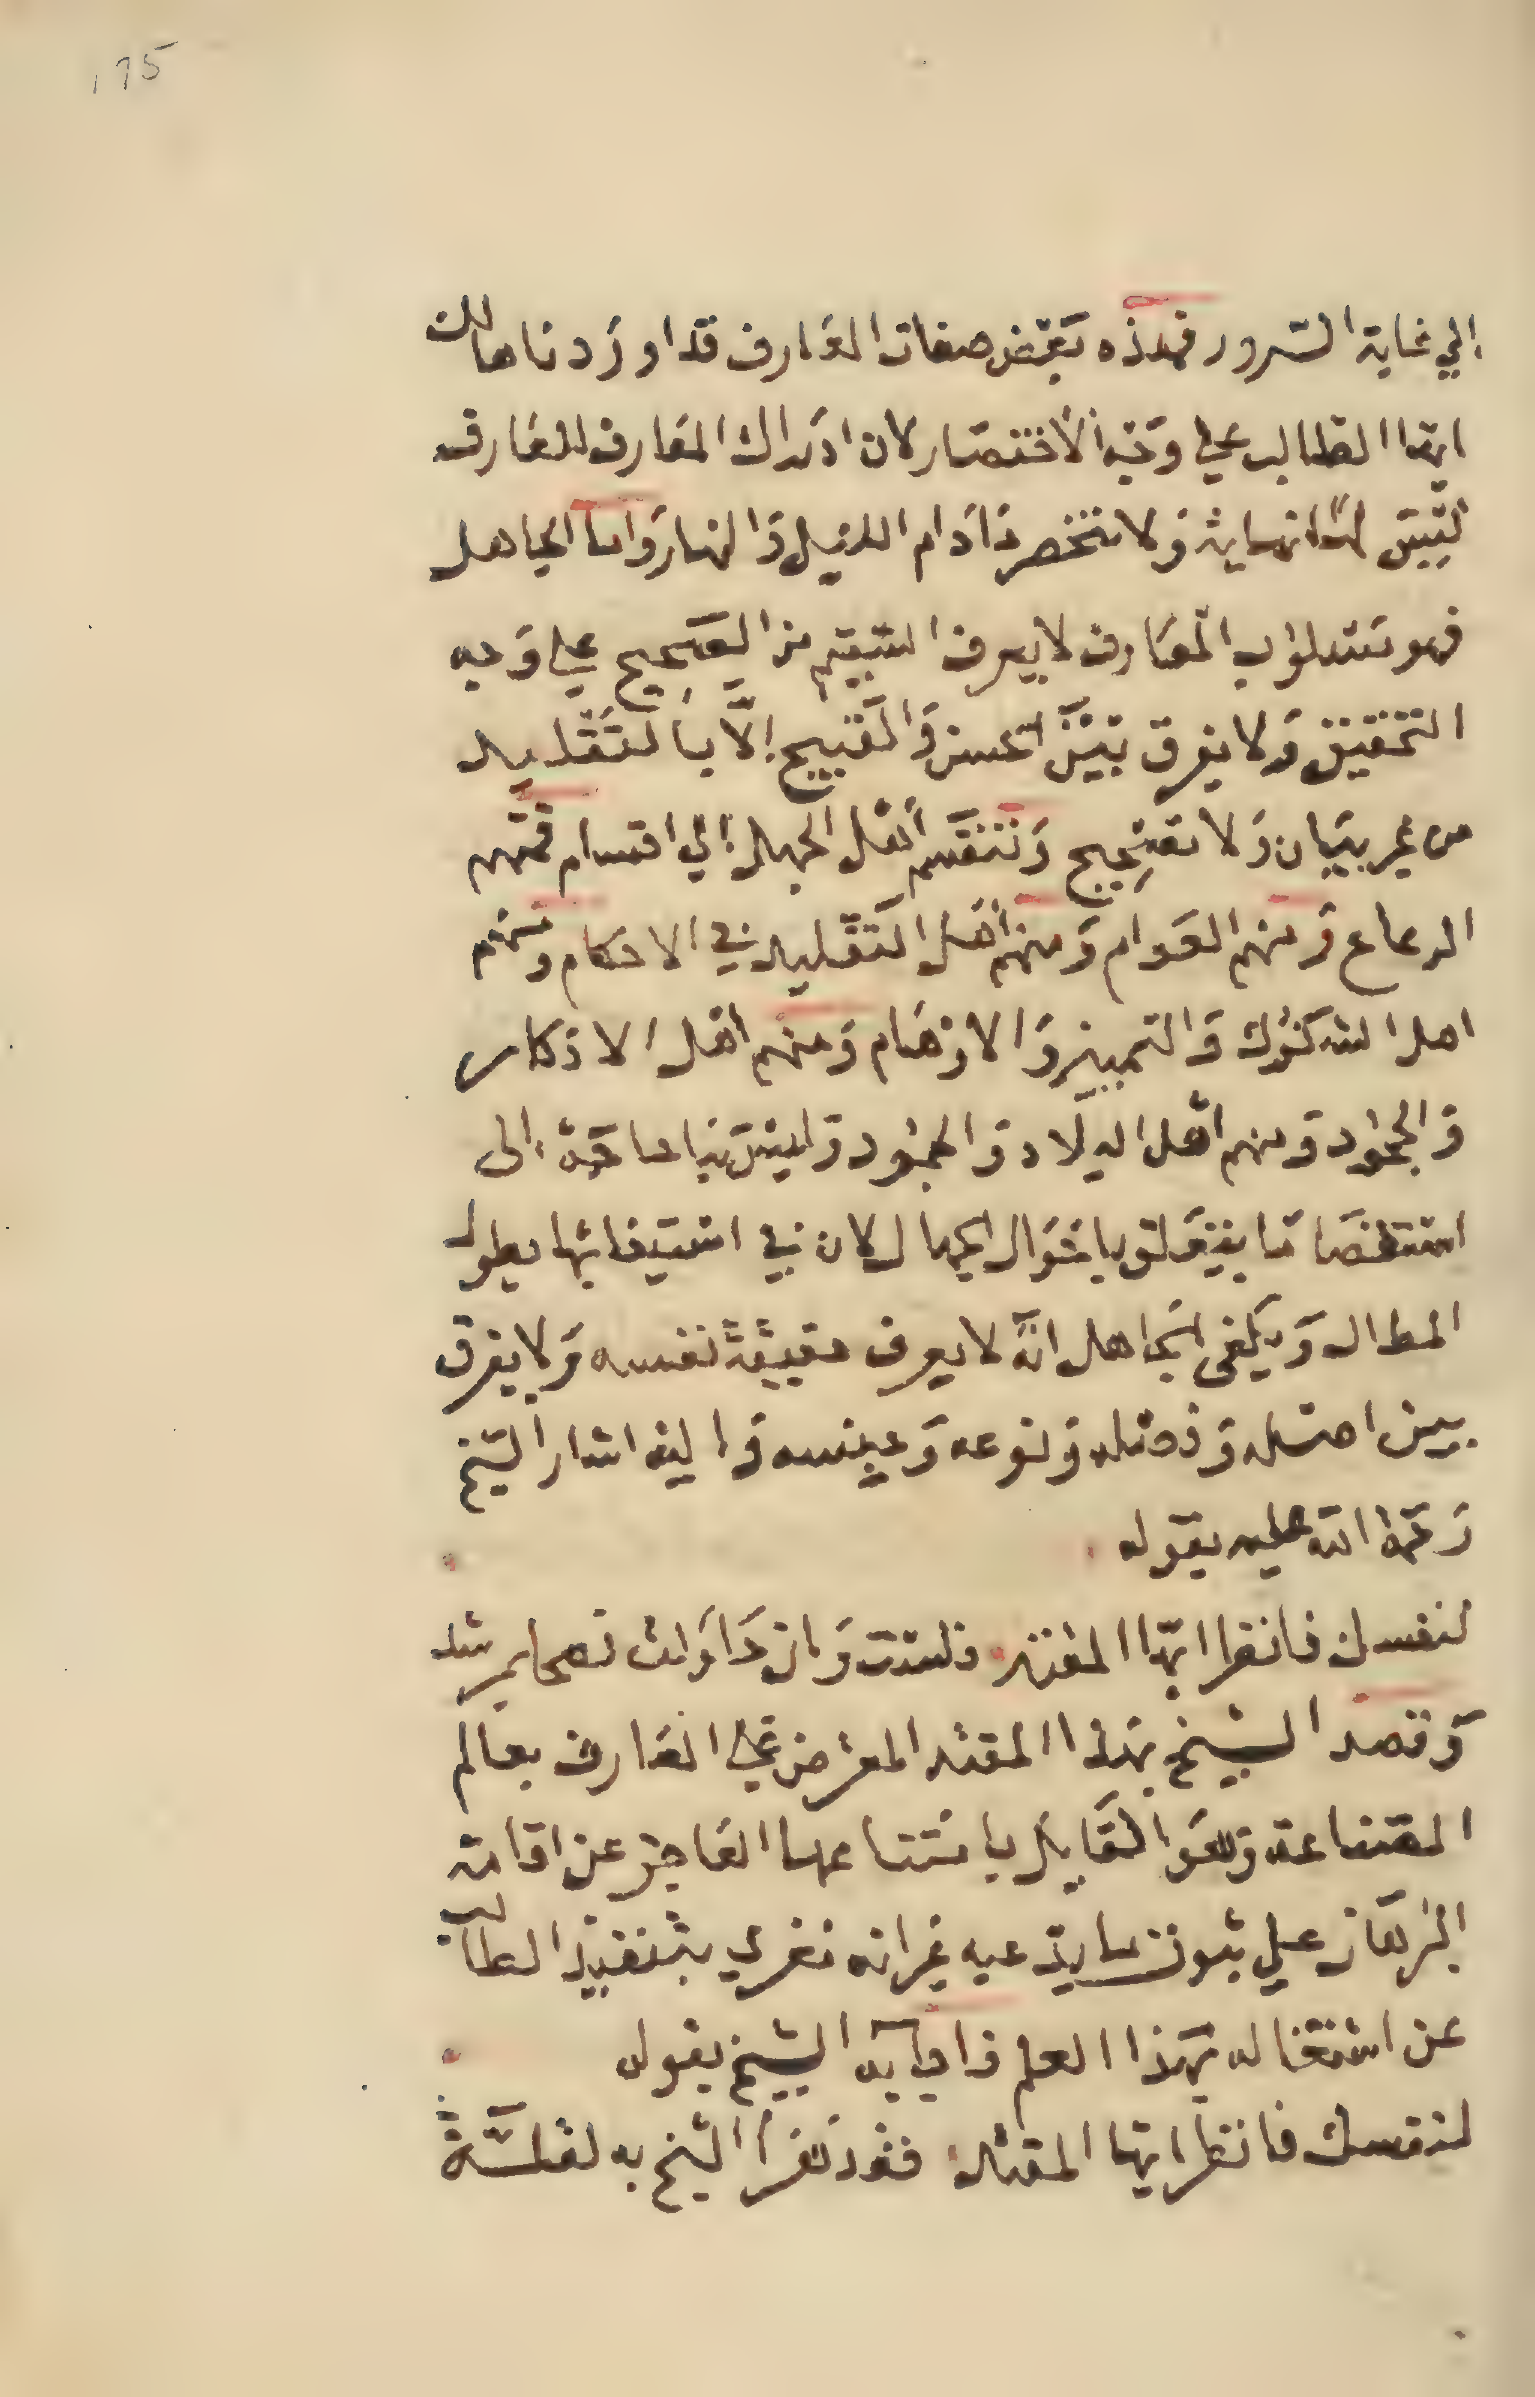 175
إلي غاية السّرور فهذه بَعْض صفات العَارف قد اورَدناها لك
ايها الطالب علي وَجْه الاختصَار لان ادرَاك المعَارف للعَارف
لَيْسَ لهَا نهاية وَلا تنحصر مَا دَام الليل وَالنهار وَاما الجاهل
فهو مَسْلوُب المعَارف لا يعرف السَّقيم من الصَحِيح علي وَجه
التحْقيق وَلا يفرق بَيْنَ الحسن وَالقَبيح إلّا بالتَقْليد
من غير بيَان وَلا تصْحِيح وَتنقَسم أهْل الجهل إلي اقسام فَمنهم
الرعاع وَمنهم العَوام وَمنهم أهْل التَقْليد في الاحكام ومنْهم
اهل الشكوُك وَالتمييز وَالاوْهَام وَمنهم اهْل الاذكار
وَالجحوُد وَمنهم أهْل البلاد وَالجموُد وَليْسَ بنا حاجَة إلى
استقصَا مَا يتعَلق باحْوَال الجهال لان في اسْتيفائها يطول
المطال وَيَكفي الجَاهل انّهَ لا يعرف حقيقْة نفسه وَلا يفرق
بين اصْله وَفصْله وَنوعه وَجنسه وَإليْه اشار الشيخ
رَحْمَة اللّه عليه بقَوله
لنفسك فانظر ايّها المفند فلسْتَ وَان دَاوَلت نصحا مرشد
وَقصَد الشيخ بهَذا المفند المعترض عَلي العَارف بعالم
الصّناعة وَهوَ القَايل بامْتناعها العَاجز عن اقامة
البرْهَان علي ثبوت ما يدّعيه غير انه مغري بتفنيْد الطالب
عن اشتغاله بهَذا العلم فاجابه الشيخ بقوله
لنفسك فانظر ايّها المفند فقد نظر الشيخ به لقلّة